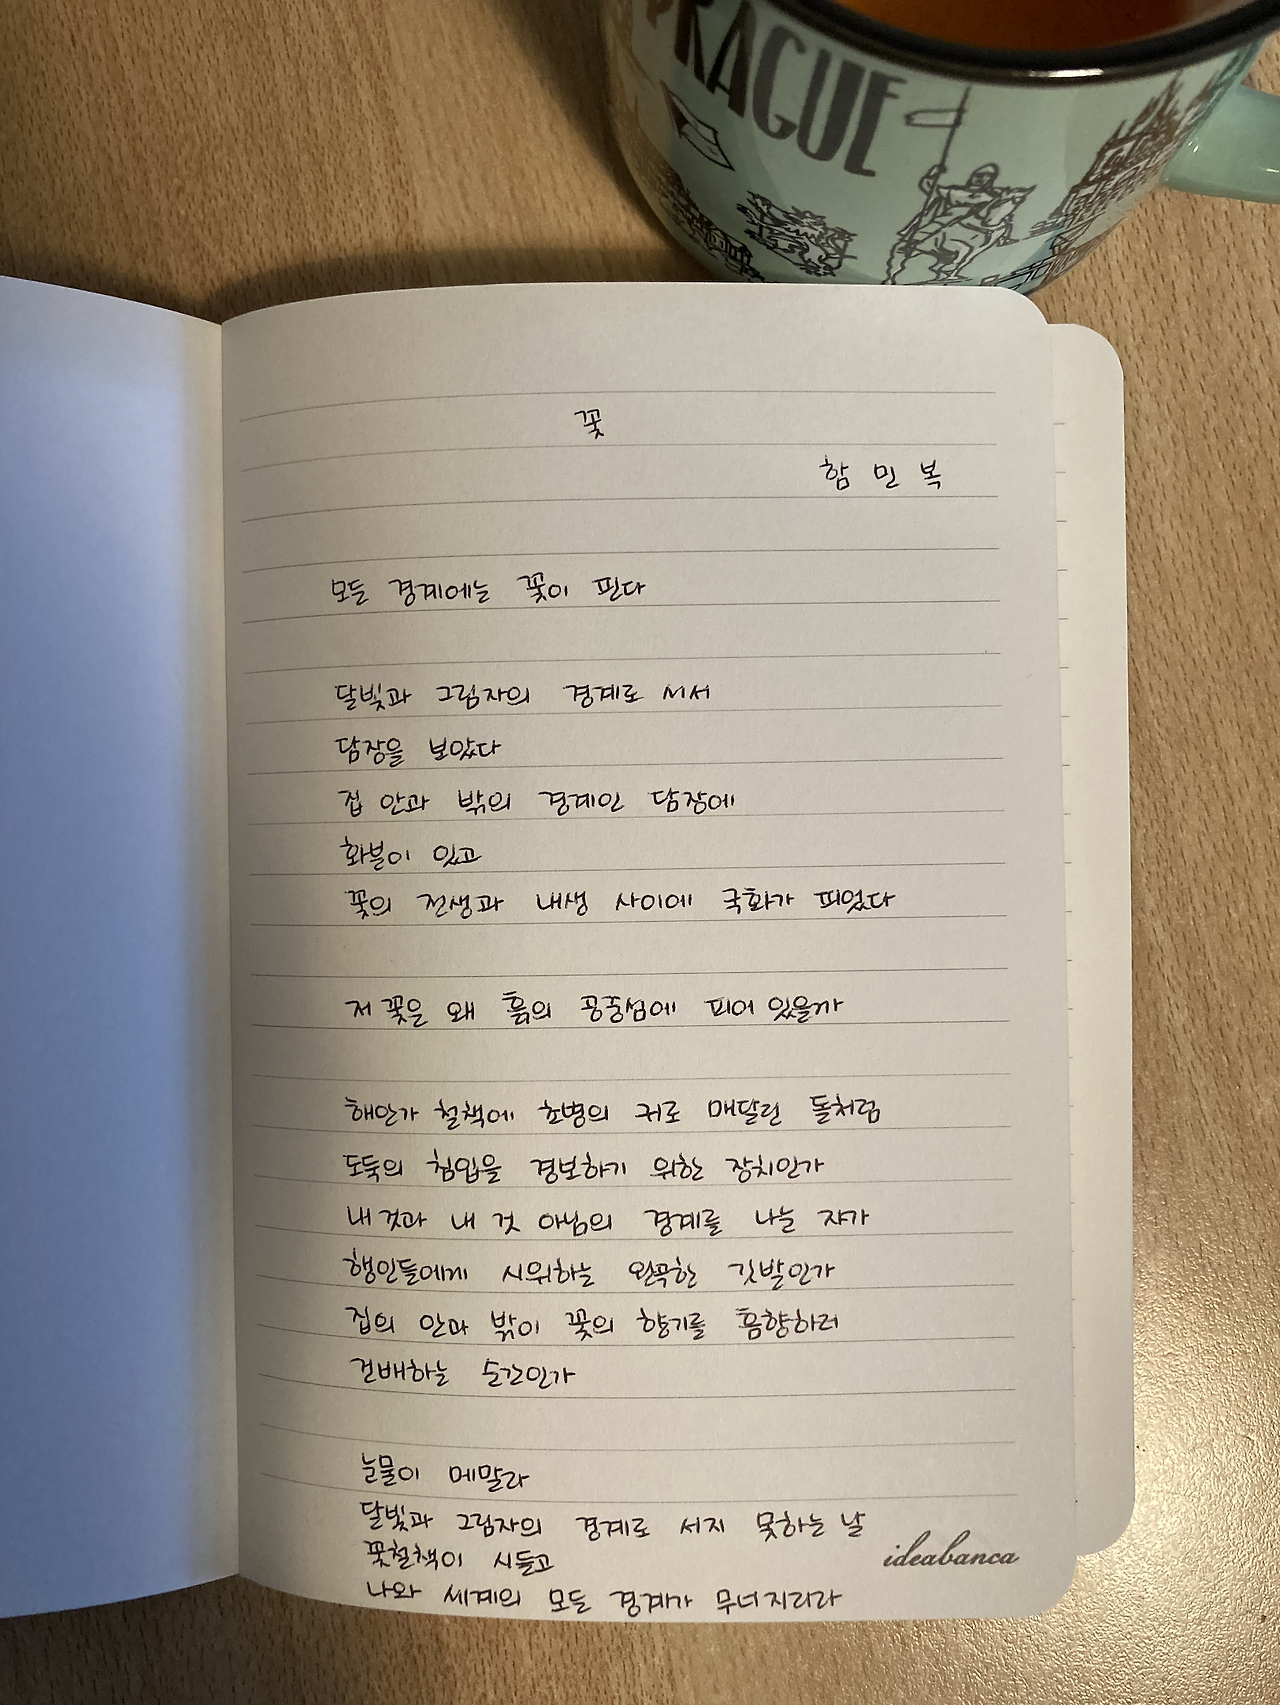 PRAGUE
꽃
함 민 복
모든 경계에는 꽃이 핀다
달빛과 그림자의 경계로 서서
담장을 보았다
집 안과 밖의 경계인 담장에
화분이 있고
꽃의 전생과 내생 사이에 국화가 피었다
저 꽃을 왜 흙의 공중섬에 피어 있을까
해안가 철책에 초병의 귀로 매달린 돌처럼
도둑의 침입을 경보하기 위한 장치인가
내 것과 내 것 아님의 경계를 나눈 자가
행인들에게 시위하는 완곡한 깃발인가
집의 안과 밖이 꽃의 향기를 흠향하러
건배하는 순간인가
눈물이 메말라
달빛과 그림자의 경계로 서지 못하는 날
꽃철책이 시들고
나와 세계의 모든 경계가 무너지리라
ideabanca